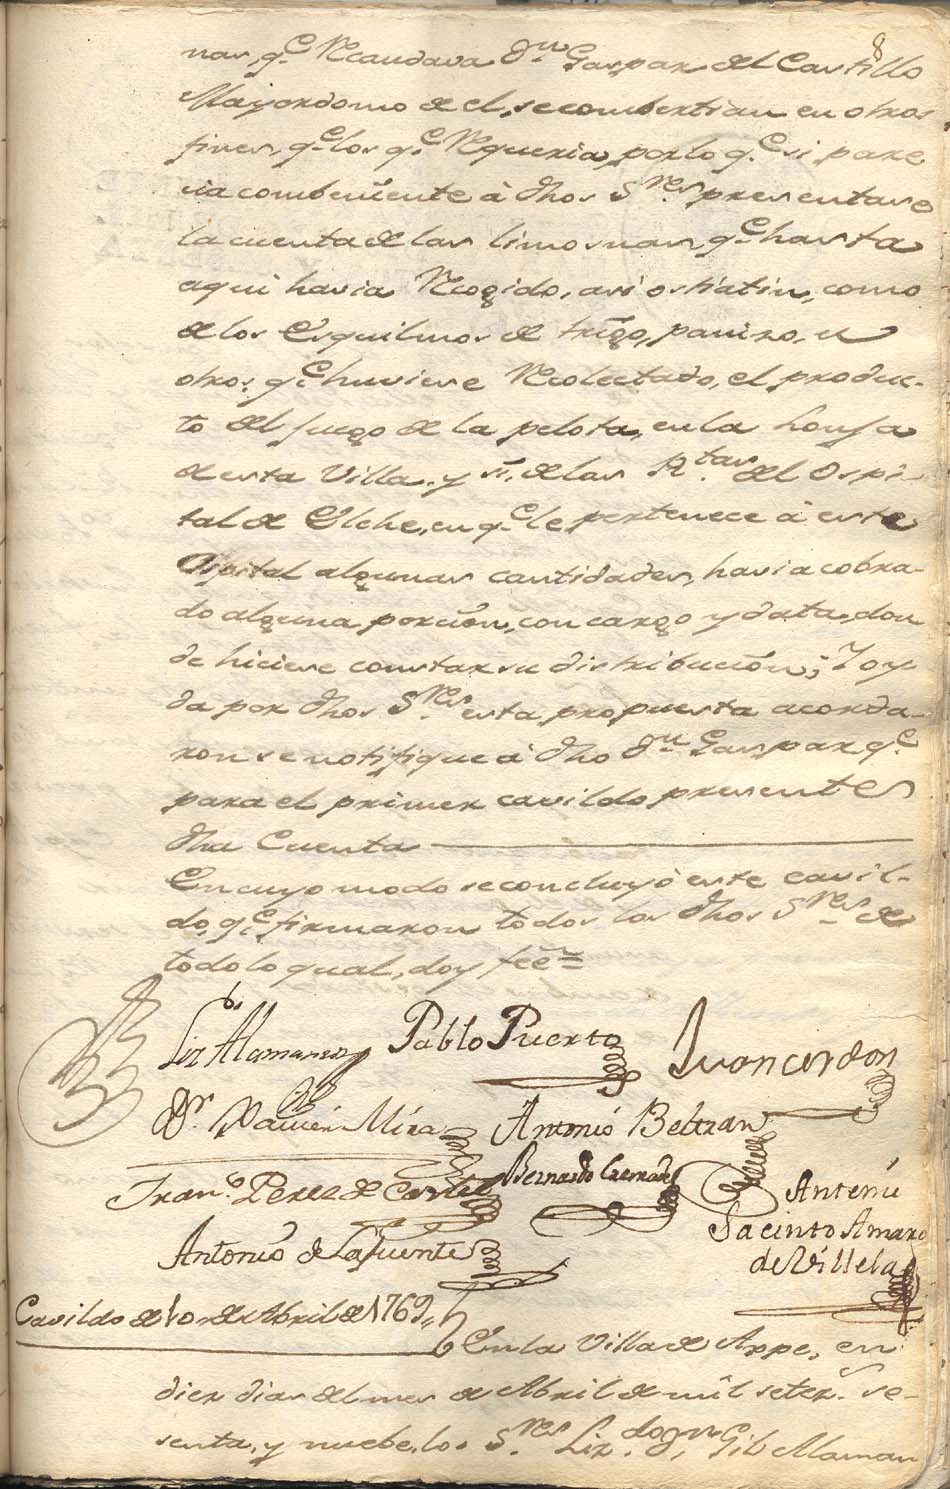 8
nas, q.e Recaudava D.n Gaspar del Castillo
Mayordomo de el, se combertian en otros
fines, q.e los q.e Requeria, por lo q.e si pare
cia combeniente à dhos S.res presentase
la cuenta de las limosnas, q.e hasta
aqui havia Recogido, asi ostiatin, como
de los Esquilmos de trigo, panizo, u
otros, q.e huviese Recolectado, el produc-
to del Juego de la pelota, en la Lonja
de esta Villa, y si, de las R.tas del Ospi-
tal de Elche, en q.e le pertenece à este
Ospital algunas cantidades, havia cobra-
do alguna porcion, con cargo y data, don
de hiciese constar su distribucion; Y oy
da por dhos S.res esta propuesta acorda-
ron se notifique à dho D.n Gaspar q.e
para el primer cavildo presente
dha Cuenta
En cuyo modo se concluyò este cavil-
do, q.e firmaron todos los dhos S.res de
todo lo qual, doy feè=
Liz.do Alaman Pablo Puerto Juan cerdan
D.r Xavier Mira Antonio Beltran
Fran.co Perez de Bernardo Antemi
Antonio de La fuente Jacinto Amaro
de Villela
Cavildo de 10 de Abril de 1769,,
En la Villa de Aspe, en
diez dias del mes de Abril de mil setez.s se-
senta, y nuebe, los S.res Liz.do D.n Gil Alaman